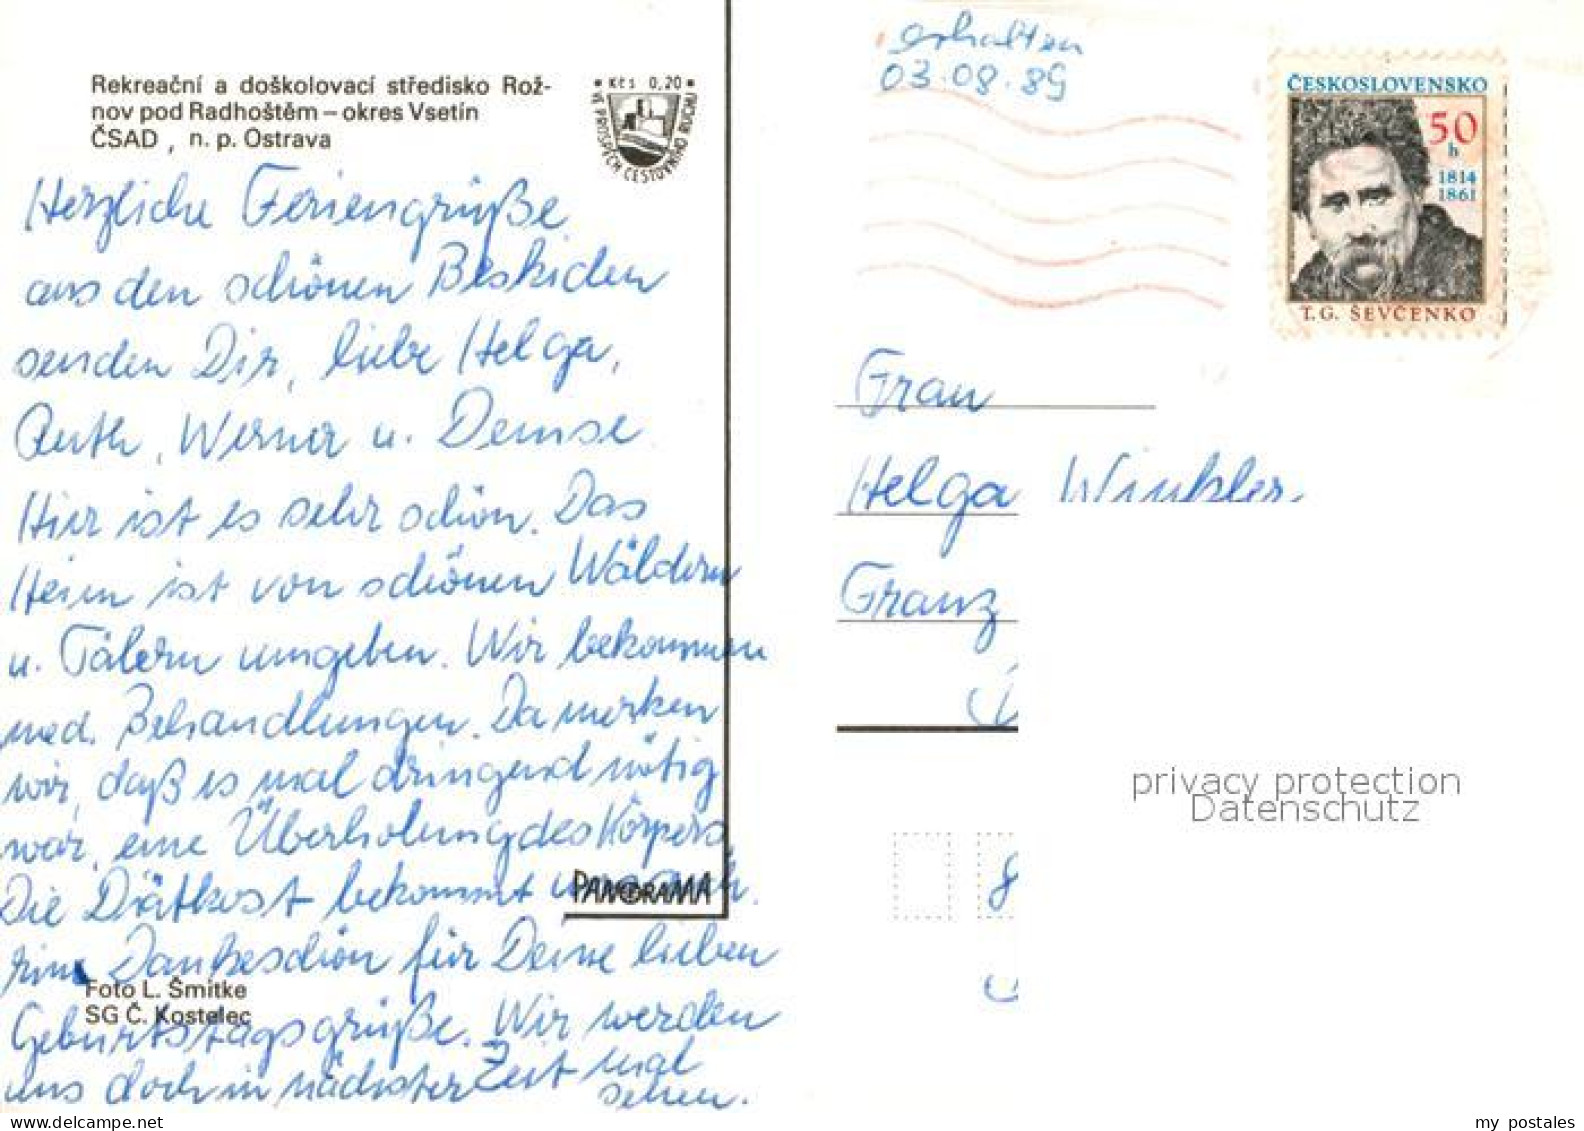 Rekreační a doškolovací středisko Rož-
nov pod Radhoštěm – okres Vsetín
ČSAD , n. p. Ostrava
Kčs 0,20
VE PROSPĚCH CESTOVNÍHO RUCHU
Herzliche Feriengrüße
aus den schönen Beskiden
senden Dir, liebe Helga,
Ruth, Werner u. Denise.
Hier ist es sehr schön. Das
Heim ist von schönen Wäldern
u. Tälern umgeben. Wir bekommen
med. Behandlungen. Da merken
wir, daß es mal dringend nötig
war, eine Überholung des Körpers.
Die Diätkost bekommt uns auch.
PANORAMA
Dankeschön für Deine lieben
Foto L. Šmitke
SG Č. Kostelec
Geburtstagsgrüße. Wir werden
uns doch in nächster Zeit mal
sehen.
erhalten
03.08.89
ČESKOSLOVENSKO
50
h
1814
1861
T.G. ŠEVČENKO
Frau
Helga Winkler
Franz
privacy protection
Datenschutz
8
my postales